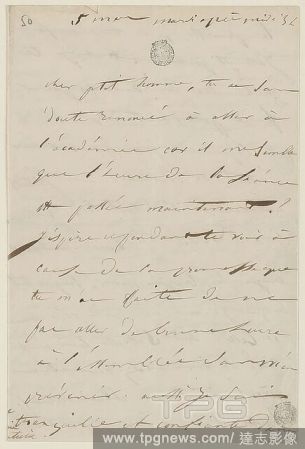 50
5 mai mardi après midi 3 h
cher ptit homme, tu as sans
doute renoncé à aller à
l'académie car il me semble
que l'heure de la séance
est passée maintenant.
J'espère cependant te voir à
cause de la promesse que
tu m'as faite de ne
pas aller de bonne heure
à l'assemblée sans m'en
prévenir. aussi je suis
tranquille et confiante
TPG
IMAGES
www.tpgnews.com / 達志影像